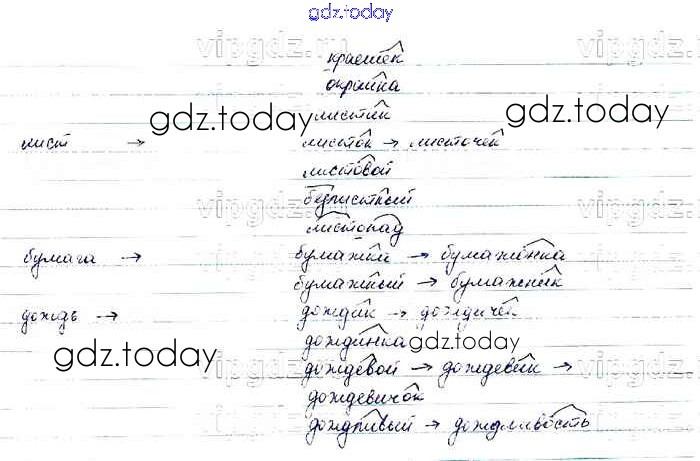 gdz.today
vipgdz.ru vipgdz.ru vipgdz.ru
краешек
окрайка
листик
gdz.today gdz.today
лист → листок → листочек
листовой
безлистный
vipgdz.ru vipgdz.ru vipgdz.ru
листопад
бумага → бумажка → бумажонка
бумажный → бумажник
дождь → дождик → дождичек
дождинка
gdz.today gdz.today
vipgdz.ru vipgdz.ru vipgdz.ru
дождевой → дождевик →
дождевичок
дождливый → дождливость